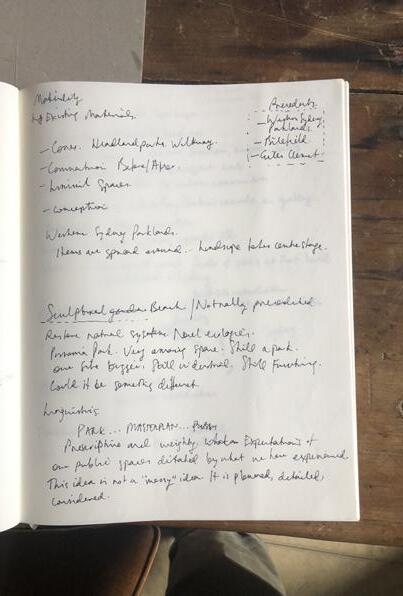 Materiality
Existing Materials.
Precedents
- Western Sydney
Parklands.
- Bielefield
- Gilles Clement.
- Conv. Headland park.
- Connection Before/After.
- Liminal Spaces
- Conception
Western Sydney Parklands.
Items are spread around... landscape takes centre stage.
Sculptural garden Beach / Naturally
Restore natural systems. Novel ecologies.
Park. Very amazing space. Still a park.
our site bigger. Still industrial. Still Functioning.
Could it be something different
Linguistics
PARK... MASTERPLAN...
Prescriptive and weighty, Expectations of
our public spaces dictated by what we have experienced
This idea is not a "messy" idea. It is planned, detailed,
considered.